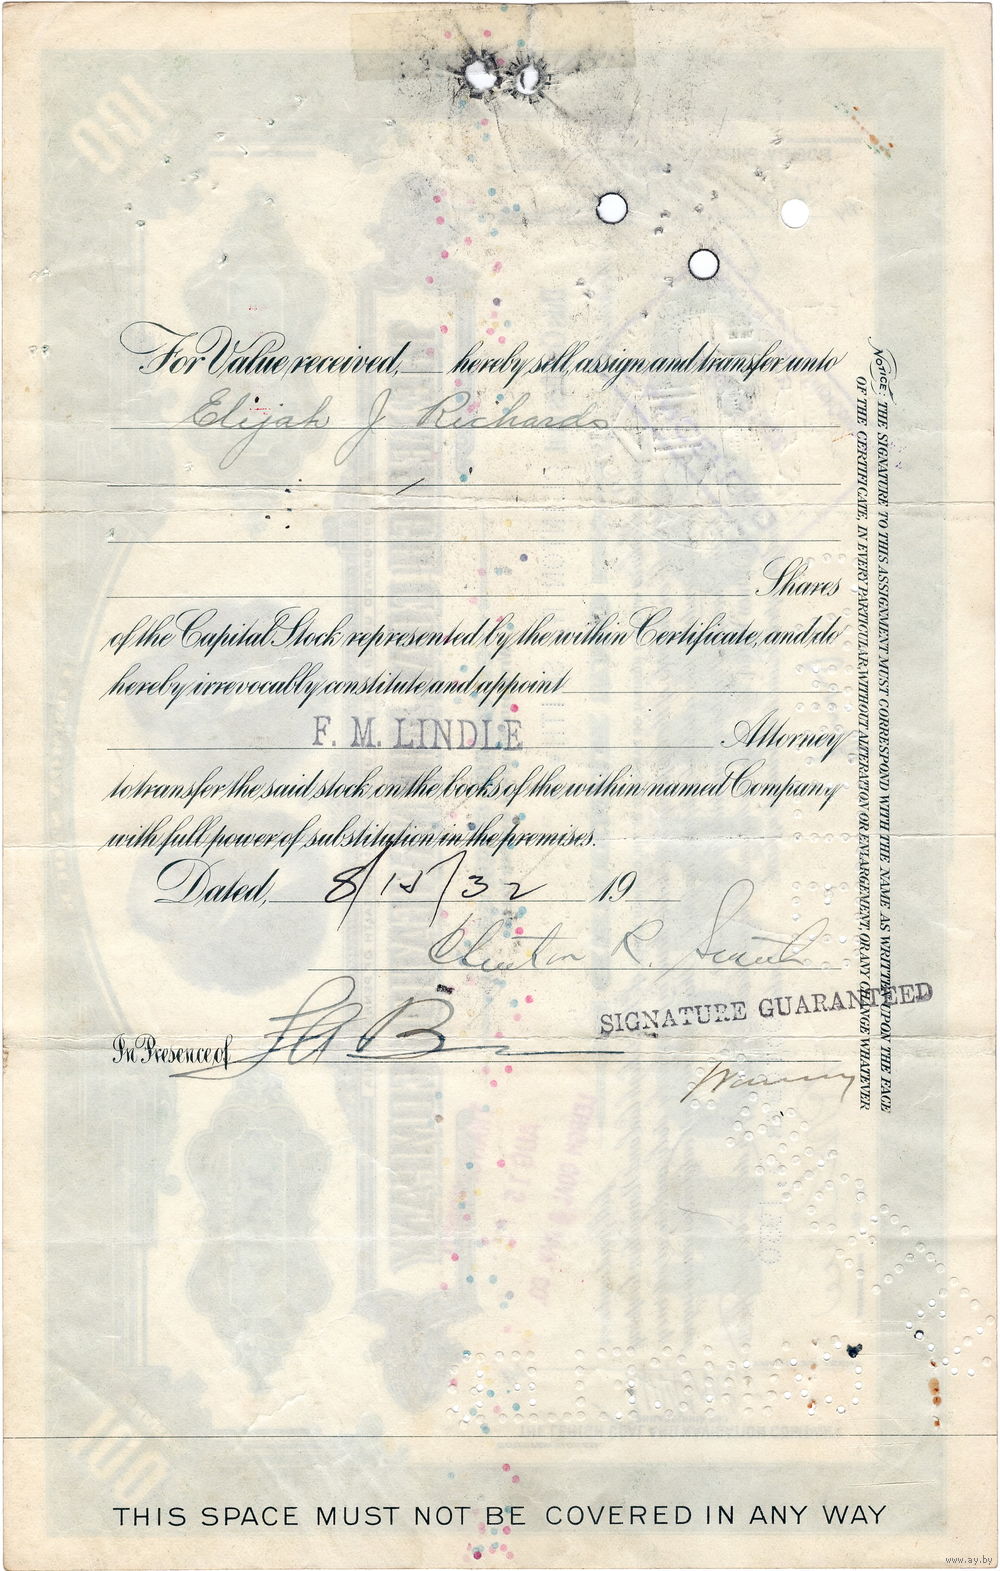 For Value received, hereby sell, assign and transfer unto
Elijah J Richards
Shares
of the Capital Stock represented by the within Certificate, and do
hereby irrevocably constitute and appoint
F. M. LINDLE
Attorney
to transfer the said stock on the books of the within named Company
with full power of substitution in the premises.
Dated, 8/15/32 19
Clinton R. Smith
SIGNATURE GUARANTEED
In Presence of
NOTICE: THE SIGNATURE TO THIS ASSIGNMENT MUST CORRESPOND WITH THE NAME AS WRITTEN UPON THE FACE
OF THE CERTIFICATE, IN EVERY PARTICULAR WITHOUT ALTERATION OR ENLARGEMENT, OR ANY CHANGE WHATEVER
100
100
THIS SPACE MUST NOT BE COVERED IN ANY WAY
www.ay.by